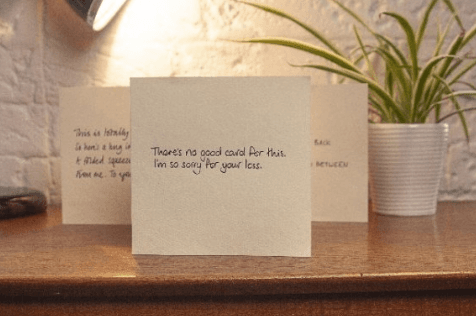 There's no good card for this.
I'm so sorry for your loss.
This is totally
So here's a hug in
it folded squeeze
from me. To
BACK
BETWEEN